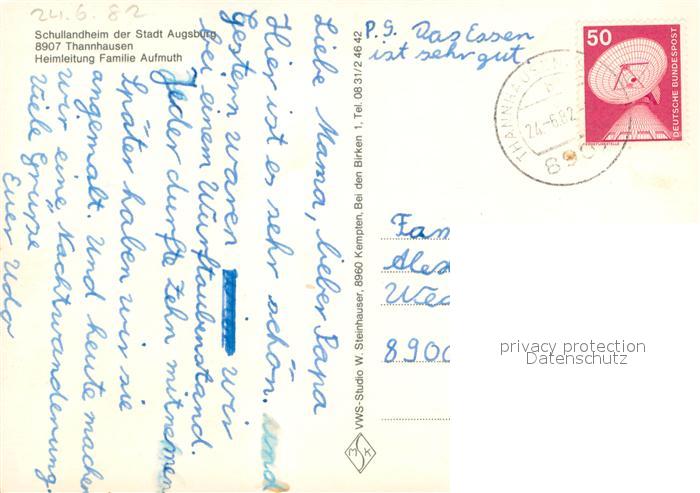 24.6.82
Schullandheim der Stadt Augsburg
8907 Thannhausen
Heimleitung Familie Aufmuth
Liebe Mama, lieber Papa
Hier ist es sehr schön. und
Gestern waren wir
bei einem Wurftaubenstand.
Jeder durfte zehn mitnemen
Später haben wir sie
angemalt. Und heute machen
wir eine Nachtwanderung.
Viele Grüße
Euer Udo
P.S. Das Essen
ist sehr gut.
VWS-Studio W. Steinhauser, 8960 Kempten, Bei den Birken 1, Tel. 08 31/2 46 42
MSK
50
DEUTSCHE BUNDESPOST
THANNHAUSEN
24.-6.82
8907
Fam
Alex
8900
privacy protection
Datenschutz